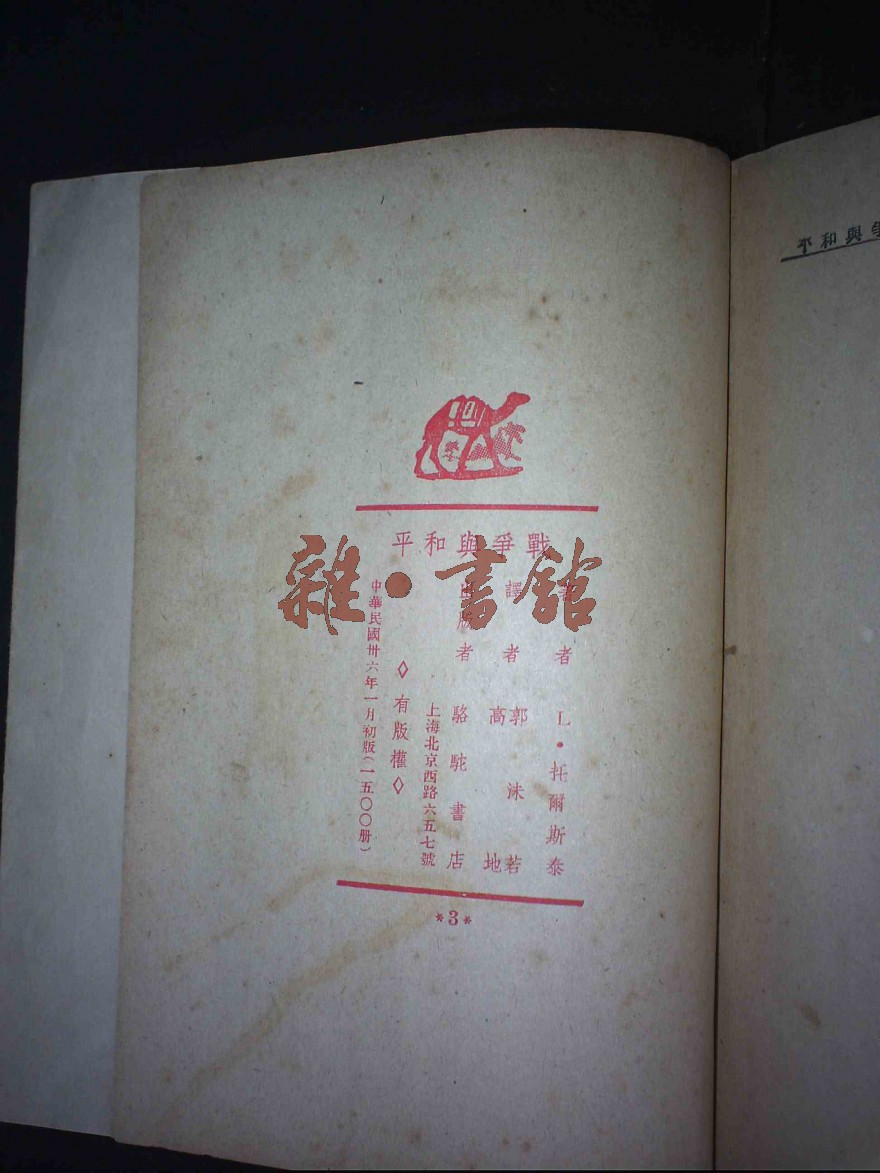 戰爭與和平
著者 L·托爾斯泰
譯者 郭沫若
高地
出版者 駱駝書店
上海北京西路六五七號
◇有版權◇
中華民國卅六年一月初版(一五〇〇册)
*3*
雜·書館
爭與和平